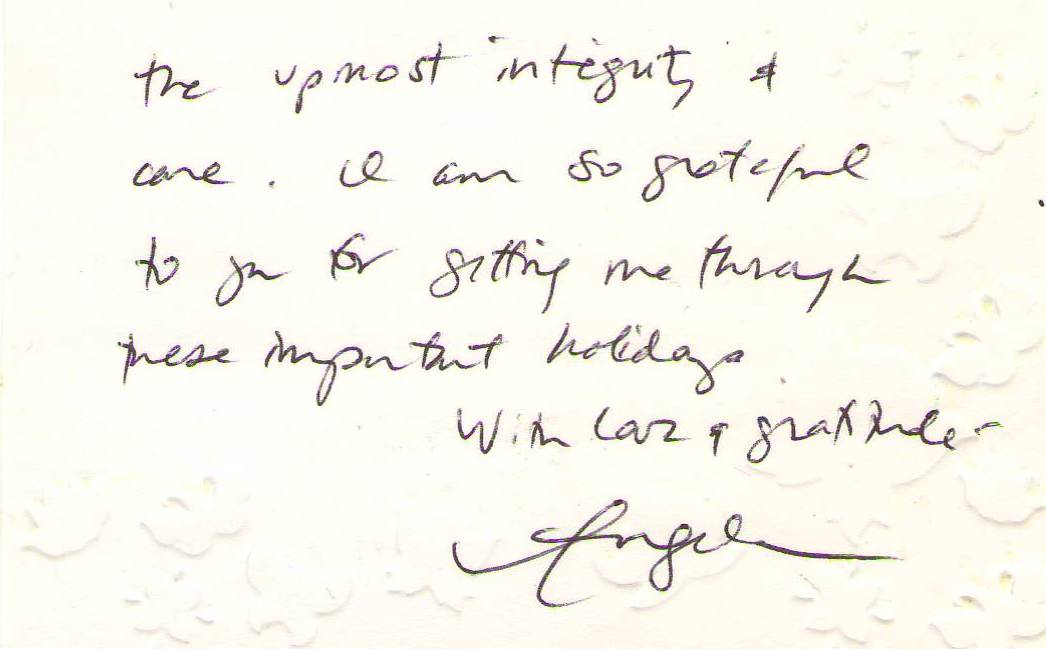 the upmost integrity &
care. I am so grateful
to you for getting me through
these important holidays
With love & gratitude -
Angela